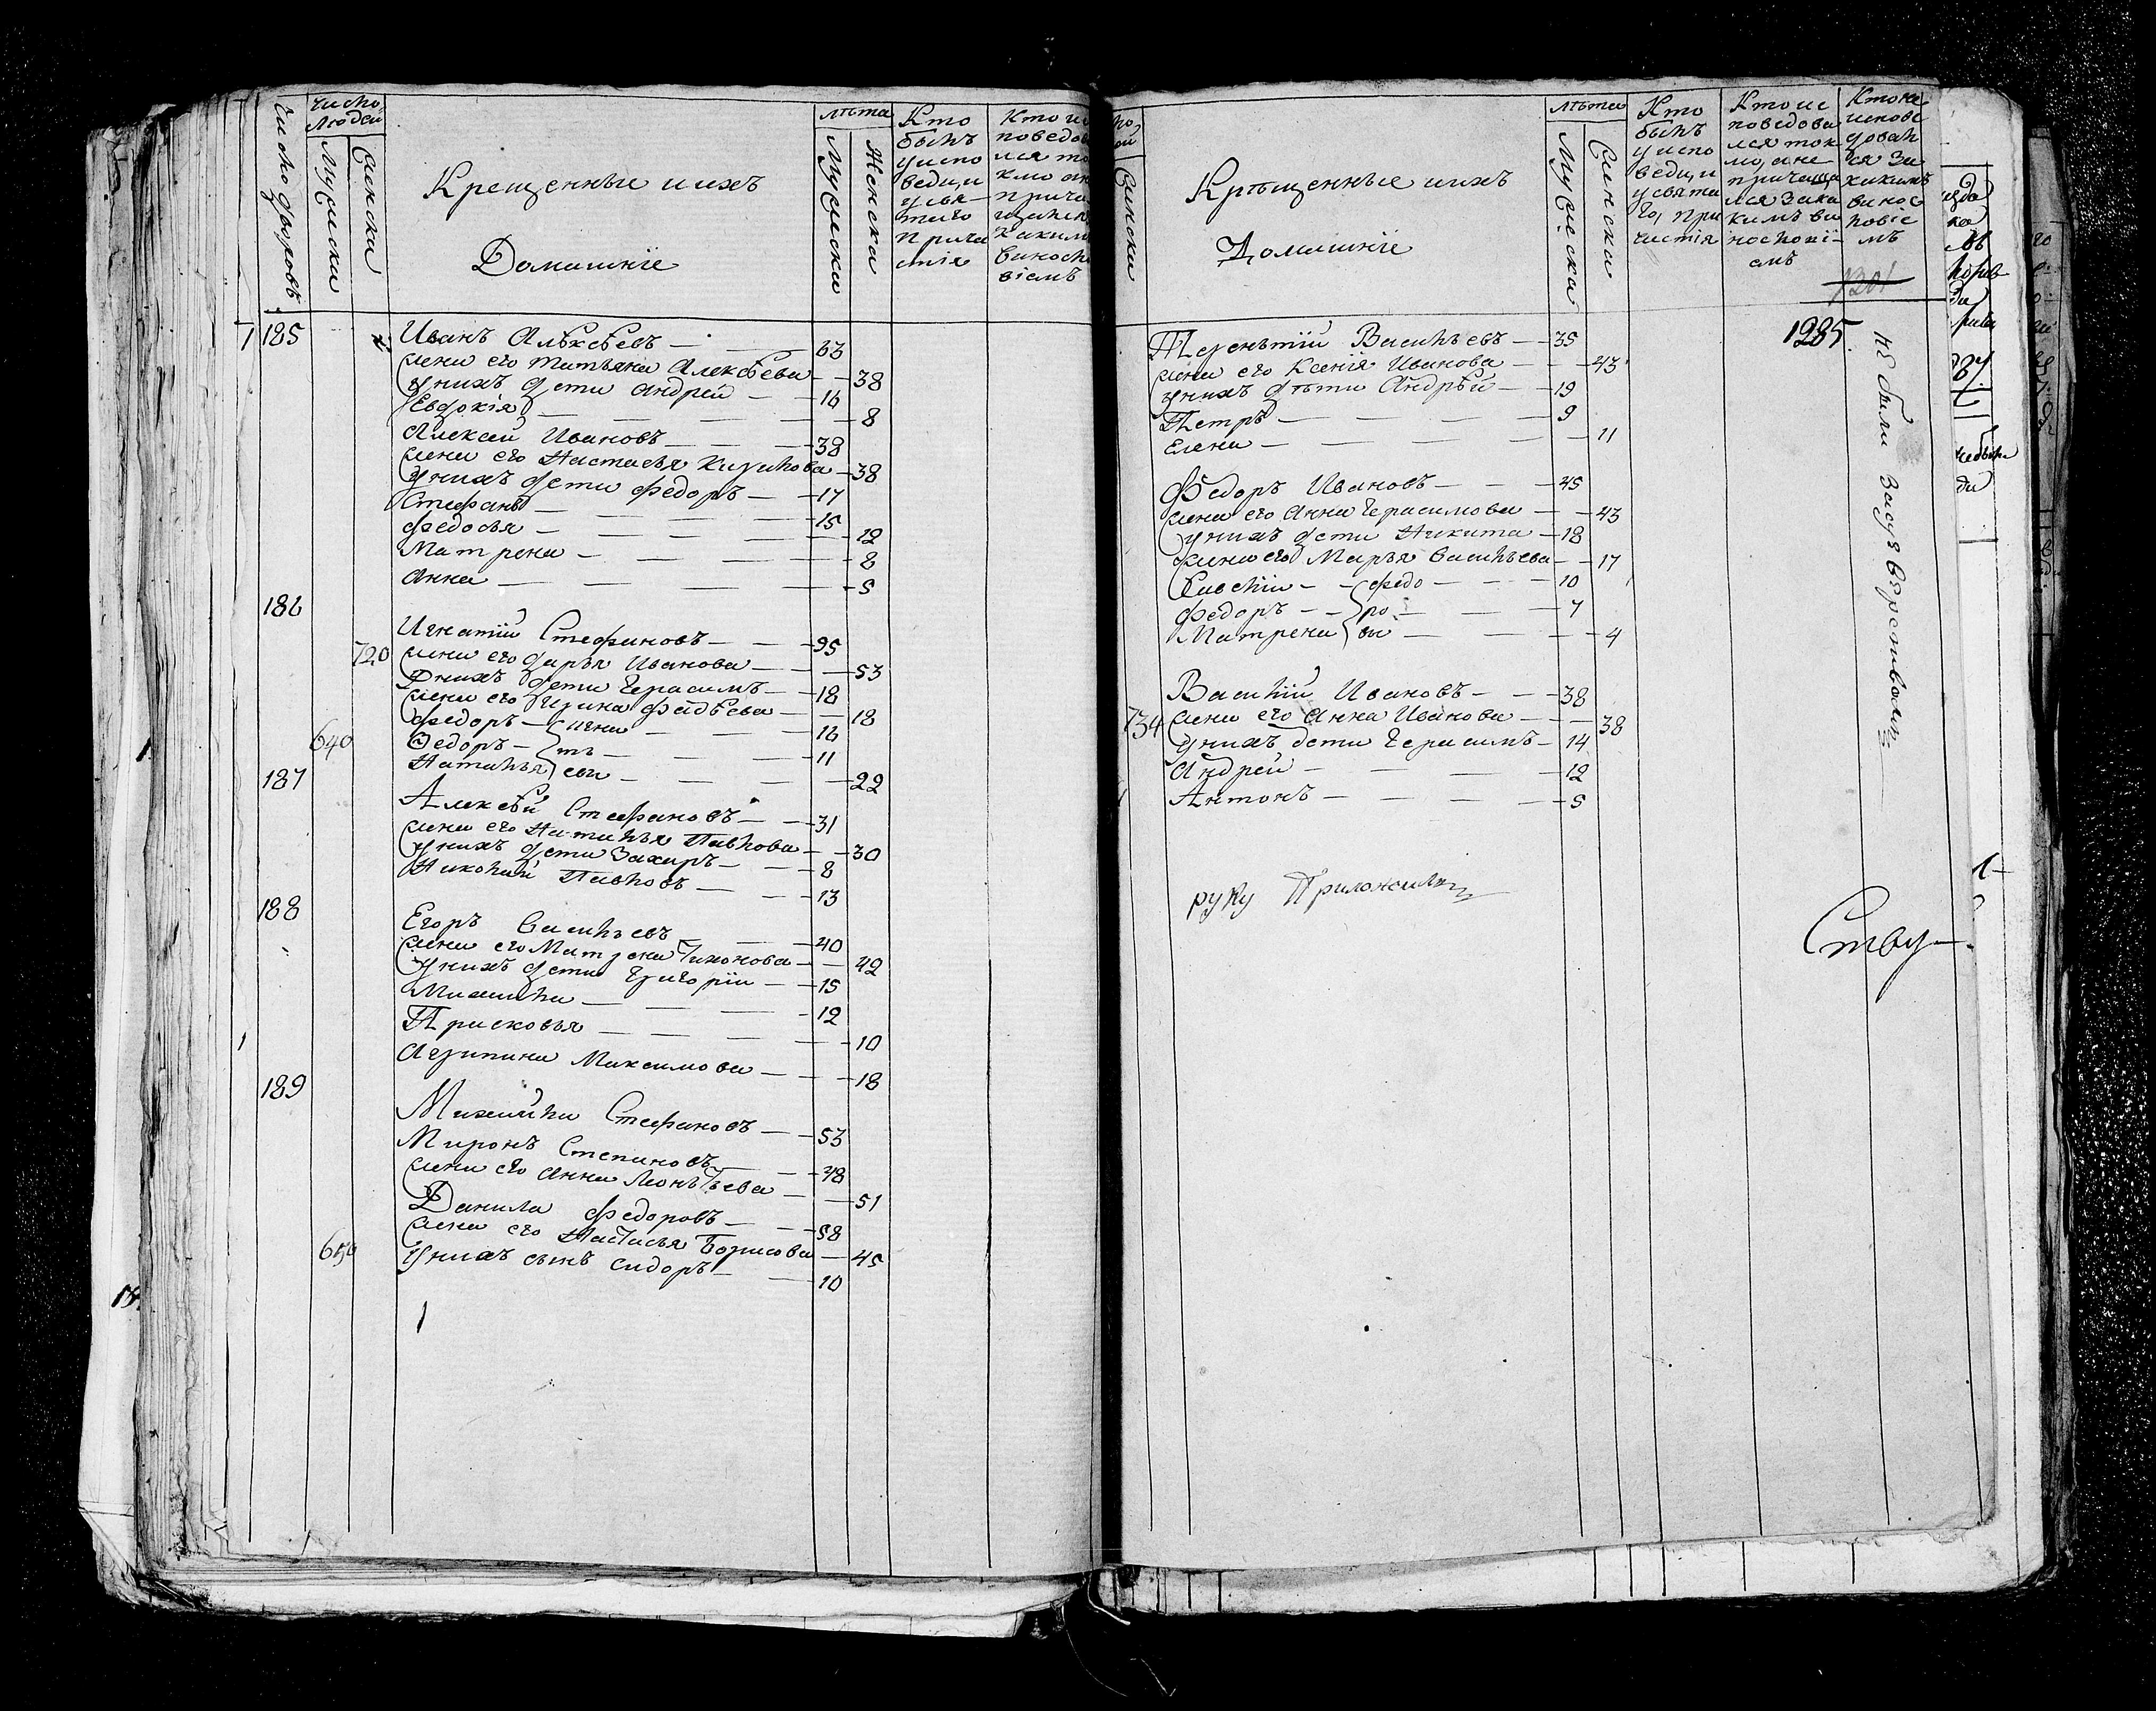 Число дворовъ
Число Людей
Мужеска
Женска
Крещенные и ихъ
Домашнiе
лѣта
Мужеска
Женска
Кто
былъ
у испо
веди, и
у свя
таго
прича
стiя
185
Иванъ Алѣксѣевъ — 63
жена его Татьяна Алексѣева — 38
у нихъ дети Андрей — 16
Евдокiя — 8
Алексей Ивановъ — 38
жена его Настасья Кирилова — 38
у нихъ дети Федоръ — 17
Стефанъ — 15
Федосья — 12
Матрена — 8
Анна — 5
186
Игнатiй Стефановъ — 95
720 жена его Дарья Иванова — 53
у нихъ дети Герасимъ — 18
жена его Ирина Фадѣева — 18
Федоръ — Игна — 16
640 Ѳедоръ — ть — 11
Наталья евы — 22
187
Алексѣй Стефановъ — 31
жена его Наталья Павлова — 30
у нихъ дети Захаръ — 8
Николай Павловъ — 13
188
Егоръ Васильевъ — 40
жена его Матрена Тихонова — 42
у нихъ дети Григорiй — 15
Михаила — 12
Прасковья — 10
Агрипина Максимова — 18
189
Михайла Стефановъ — 53
Миронъ Степановъ — 48
жена его Анна Леонтьева — 51
Данила Федоровъ — 58
жена его Настасья Борисова — 45
650 у нихъ сынъ Сидоръ — 10
Женска
Крѣщенные и ихъ
Домашнiе
лѣта
Мужеска
Женска
Кто
былъ
у испо
веди, и
у свята
го, при
частiя
Кто ис
поведова
лся ток
мо, а не
прича­ща
лся за ка
кимъ ви
нословi
емъ
Кто не
испове
довал
ся за
какимъ
винос
ловiе
мъ
1301
1285
не были за судъ
Терентiй Васильевъ — 35
жена его Ксенiя Иванова — 43
у нихъ дѣти Андрѣй — 19
Петръ — 9
Елена — 11
Федоръ Ивановъ — 45
жена его Анна Герасимова — 43
у нихъ дети Никита — 18
жена его Марья Васильева — 17
Василiй — Федо — 10
Федоръ — ро — 7
Матрена вы — 4
Василiй Ивановъ — 38
734 жена его Анна Иванова — 38
у нихъ дети Герасимъ — 14
Андрей — 12
Антонъ — 5
руку Приложилъ
Ству